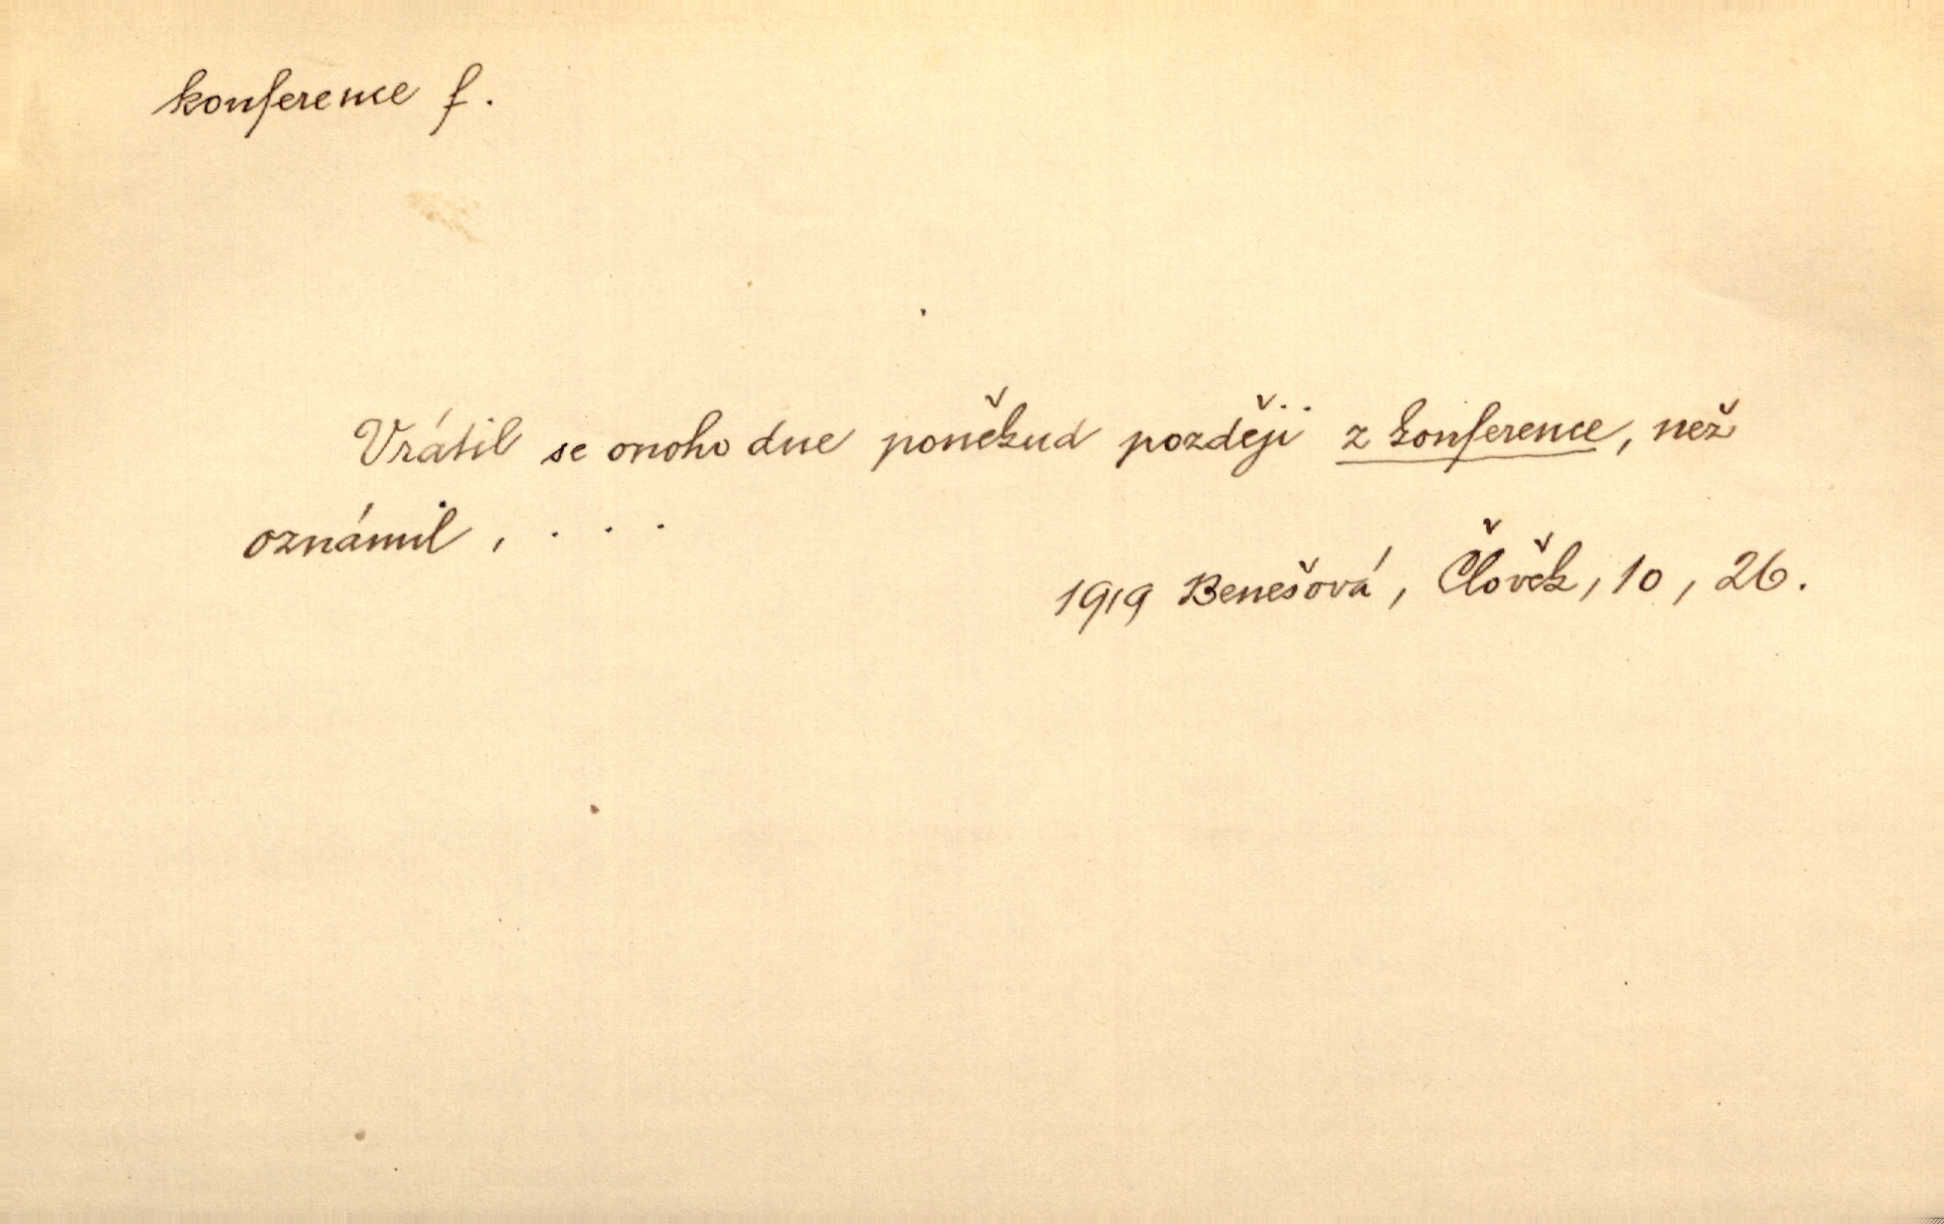 konference f.
Vrátil se onoho dne poněkud později z konference, než
oznámil, . . .
1919 Benešová, Člověk, 10, 26.